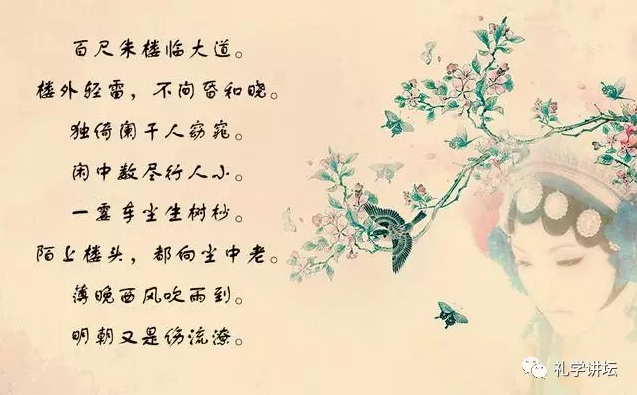 百尺朱楼临大道。
楼外轻雷，不间昏和晓。
独倚阑干人窈窕。
闲中数尽行人小。
一霎车尘生树杪。
陌上楼头，都向尘中老。
薄晚西风吹雨到。
明朝又是伤流潦。
礼学讲坛